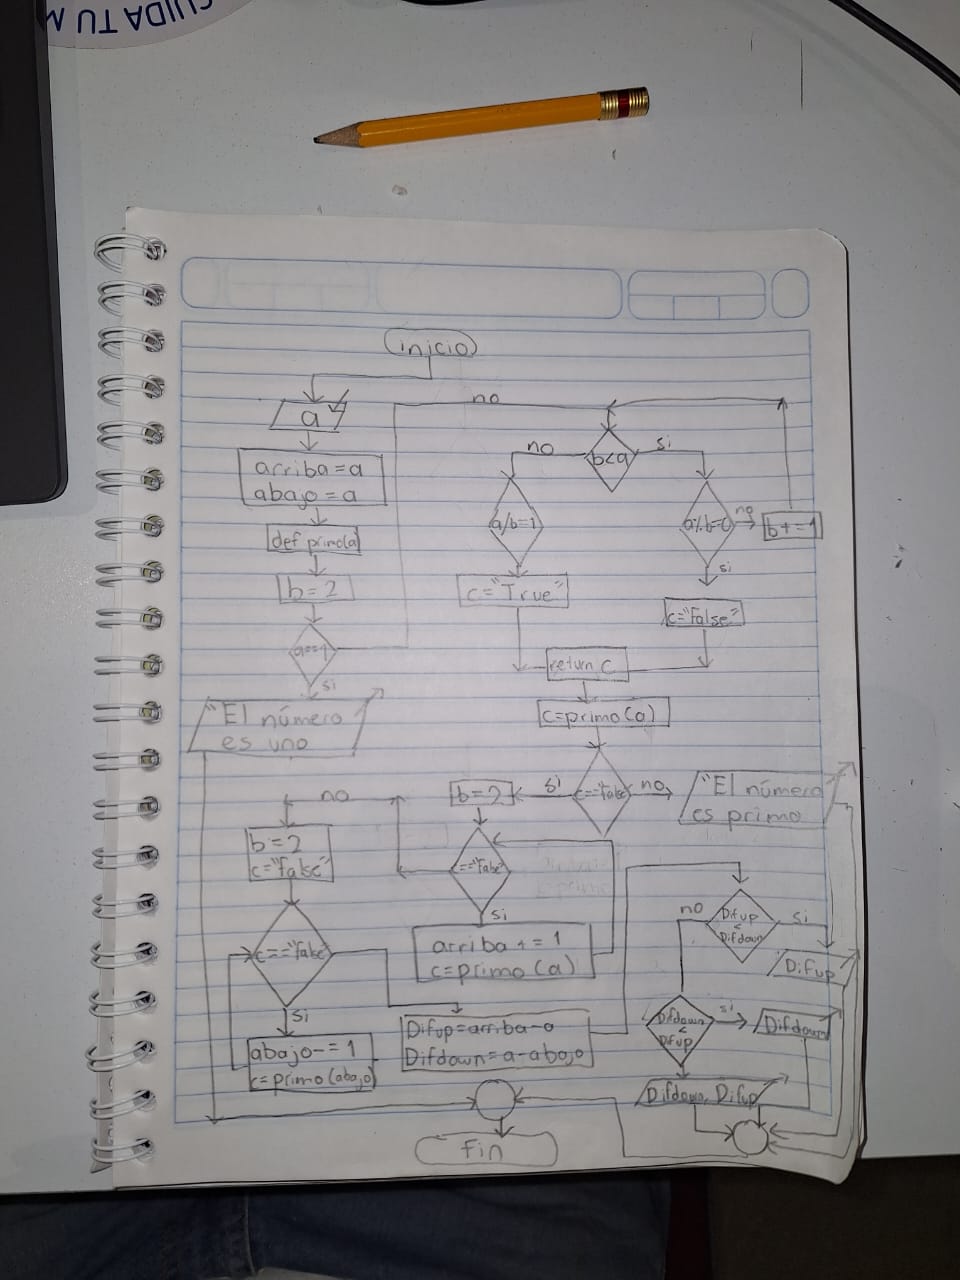 CUIDA TU M
inicio
a
arriba = a
abajo = a
def primo(a
b = 2
a==1
no
si
"El número
es uno
b<a
no
si
a/b=1
a%b=0
no
b+=1
si
c="True"
c="False"
return c
c=primo(a)
c=="False"
si
no
"El número
es primo
b=2
c=="False"
no
si
arriba += 1
c=primo (a)
b = 2
c="False"
c=="False"
si
abajo-= 1
c=primo (abajo)
Difup=arriba-a
Difdown=a-abajo
Difup
<
Difdown
no
si
Difup
Difdown
<
Difup
si
Difdown
Difdown, Difup
fin